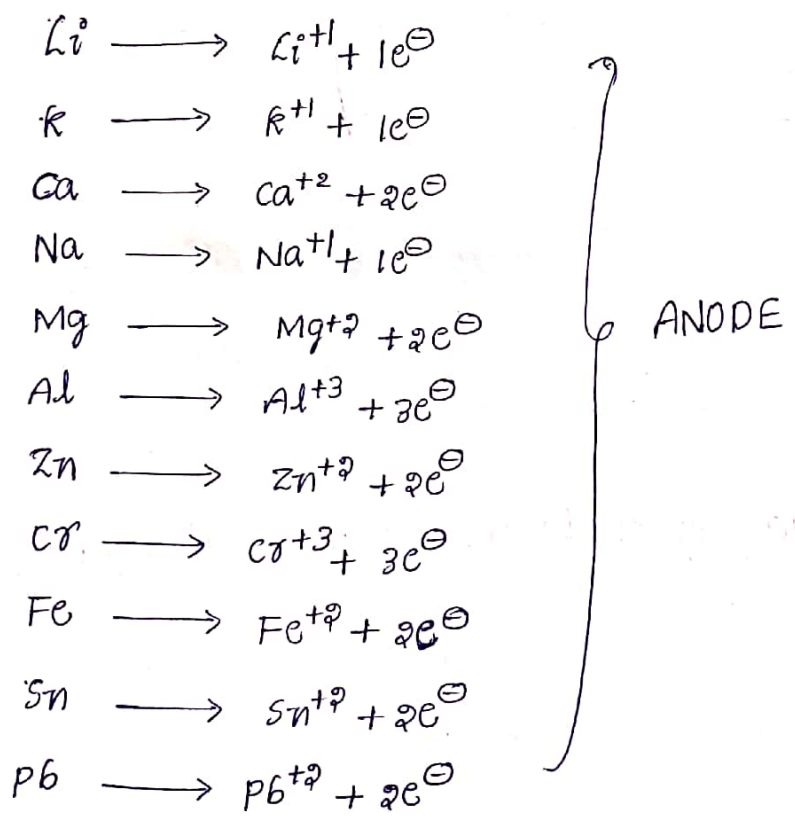 Li ⟶ Li⁺¹ + 1e⊖
K ⟶ K⁺¹ + 1e⊖
Ca ⟶ Ca⁺² + 2e⊖
Na ⟶ Na⁺¹ + 1e⊖
Mg ⟶ Mg⁺² + 2e⊖
ANODE
Al ⟶ Al⁺³ + 3e⊖
Zn ⟶ Zn⁺² + 2e⊖
Cr ⟶ Cr⁺³ + 3e⊖
Fe ⟶ Fe⁺² + 2e⊖
Sn ⟶ Sn⁺² + 2e⊖
Pb ⟶ Pb⁺² + 2e⊖